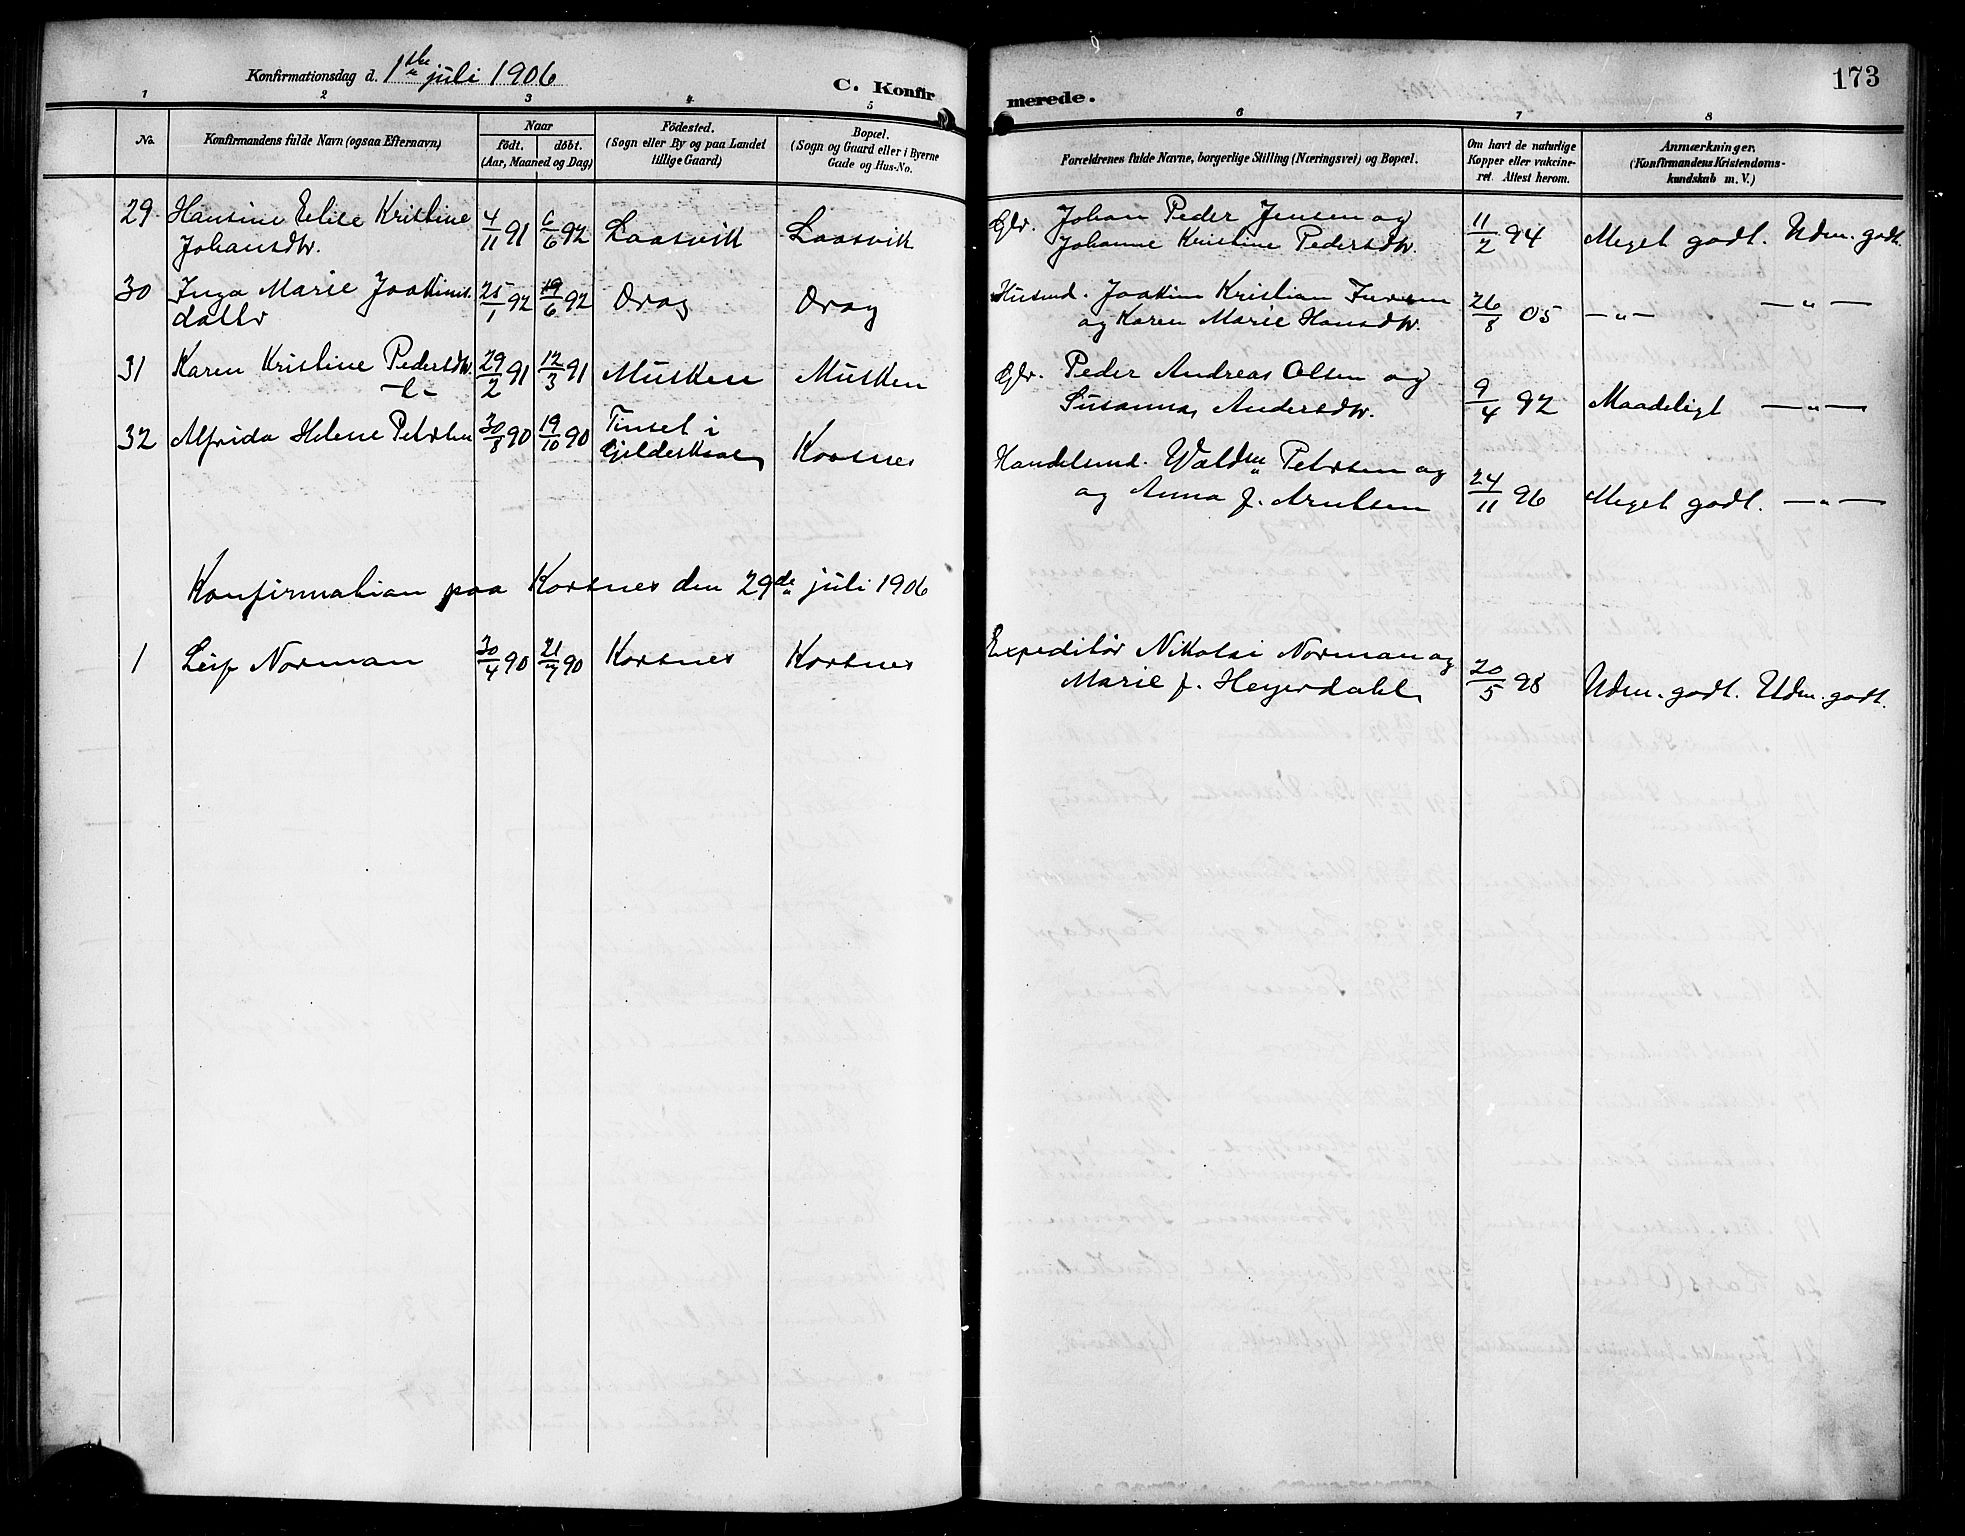 Konfirmationsdag d. 1ste juli 1906
C. Konfirmerede.
173
1 2 3 4 5 6 7 8
No.
Konfirmandens fulde Navn (ogsaa Efternavn)
Naar
födt. döbt.
(Aar, Maaned og Dag)
Födested.
(Sogn eller By og paa Landet
tillige Gaard)
Bopæl.
(Sogn og Gaard eller i Byerne
Gade og Hus-No.
Forældrenes fulde Navne, borgerlige Stilling (Næringsvei) og Bopæl.
Om havt de naturlige
Kopper eller vakcine-
ret. Attest herom.
Anmærkninger.
(Konfirmandens Kristendoms-
kundskab m. V.)
29 Hansine Elise Kristine 4/11 91 6/6 92 Laasvik Laasvik Glr. Johan Peder Jensen og 11/2 94 Meget godt. Udm. godt.
Johansdtr. Johanne Kristine Pedersdtr.
30 Inga Marie Joakims- 25/1 92 19/6 92 Drag Drag Husmd. Joakim Kristian 26/8 05 —„— —„—
datter og Karen Marie Hansdtr.
31 Karen Kristine Pedersdtr. 29/2 91 12/3 91 Musken Musken Glr. Peder Andreas Olsen og 9/4 92 Maadeligt —„—
Susanna Andersdtr.
32 Alfrida Helene Petersen 30/8 90 19/10 90 i Gjelderskaal Korsnes Handelsmd. Petersen og 24/11 96 Meget godt. —„—
og Anna f. Arntsen
Konfirmation paa Korsnes den 29de juli 1906
1 Leif Norman 30/4 90 21/7 90 Korsnes Korsnes Expeditör Nikolai Norman og 20/5 98 Udm. godt. Udm. godt.
Marie f. Heyerdahl